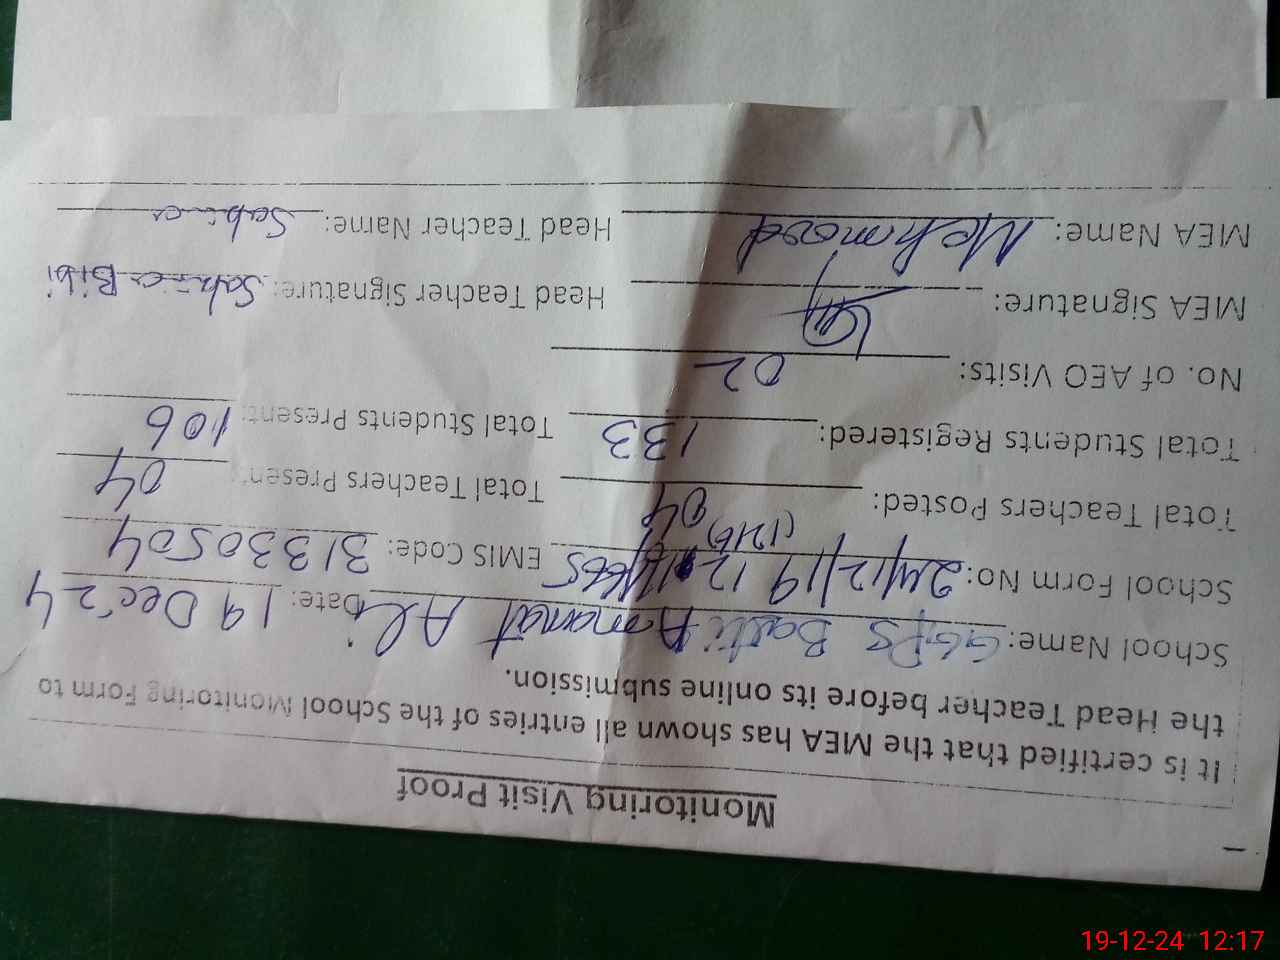 Monitoring Visit Proof
It is certified that the MEA has shown all entries of the School Monitoring Form to
the Head Teacher before its online submission.
School Name: GGPS Basti Amanat Ali Date: 19 Dec 24
School Form No: EMIS Code: 31330504
(1216)
Total Teachers Posted: 04 Total Teachers Present: 04
Total Students Registered: 133 Total Students Present: 106
No. of AEO Visits: 02
MEA Signature: Head Teacher Signature: Sabina Bibi
MEA Name: Mehmood Head Teacher Name: Sabina
19-12-24 12:17